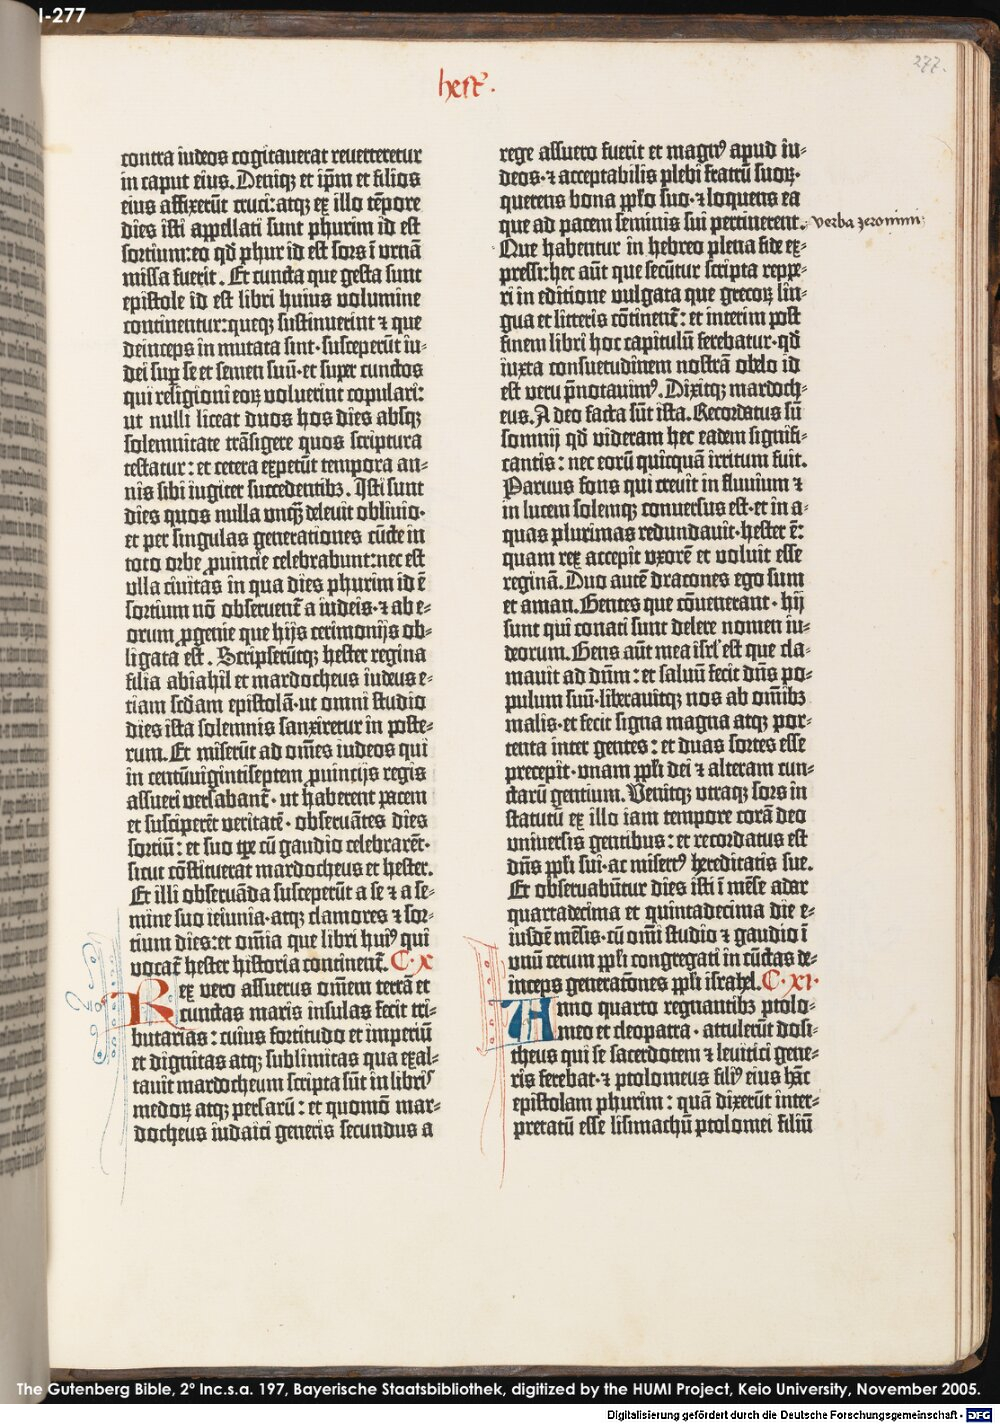 I-277
277.
hest̕.
contra iudeos cogitauerat reuerteretur
in caput eius. Deniqꝫ et ip̄m et filios
eius affixerūt cruci: atqꝫ ex illo tēpore
dies isti appellati sunt phurim id est
sortium: eo qd̓ phur id est sors ī vrnā
missa fuerit. Et cuncta que gesta sunt
epistole id est libri huius volumine
continentur: queqꝫ sustinuerint ⁊ que
deinceps in mutata sint· susceperūt iu-
dei suꝑ se et semen suū· et super cunctos
qui religioni eoꝝ voluerint copulari:
ut nulli liceat duos hos dies absqꝫ
solemnitate trāsigere quos scriptura
testatur: et cetera expetūt tempora an-
nis sibi iugiter succedentibꝫ. Isti sunt
dies quos nulla vnqꝫ̄ deleuit obliuio·
et per singulas generationes cūcte in
toto orbe ꝓuincie celebrabunt: nec est
vlla ciuitas in qua dies phurim id ē
sortium nō obseruent̄ a iudeis· ⁊ ab e-
orum ꝓgenie que hijs cerimonijs ob-
ligata est. Scripserūtqꝫ hester regina
filia abiahil et mardocheus iudeus e-
tiam scd̓am epistolā· ut omni studio
dies ista solemnis sanxiretur in poste-
rum. Et miserūt ad om̄es iudeos qui
in centūuigintiseptem ꝓuincijs regis
assueri versabant̄· ut haberent pacem
et susciperēt veritatē· obseruātes dies
sortiū: et suo tꝑe cū gaudio celebrarēt·
sicut cōstituerat mardocheus et hester.
Et illi obseruāda susceperūt a se ⁊ a se-
mine suo ieiunia· atqꝫ clamores ⁊ sor-
tium dies: et om̄ia que libri huiꝰ qui
vocat̄ hester historia continent̄. C· X
Rex vero assuerus om̄em terrā et
cunctas maris insulas fecit tri-
butarias: cuius fortitudo et imperiū
et dignitas atqꝫ sublimitas qua exal-
tauit mardocheum scripta sūt in libris
medoꝝ atqꝫ persarū: et quomō mar-
docheus iudaici generis secundus a
rege assuero fuerit et magnꝰ apud iu-
deos· ⁊ acceptabilis plebi fratrū suoꝝ·
querens bona ppl̓o suo· ⁊ loquens ea
que ad pacem seminis sui pertinerent.
verba jeronimi
Que habentur in hebreo plena fide ex-
pressi: hec aūt que secūtur scripta reppe-
ri in editione vulgata que grecoꝝ lin-
gua et litteris cōtinent̄: et interim post
finem libri hoc capitulū ferebatur· qd̓
iuxta consuetudinem nostrā obelo id
est veru p̄notauimꝰ. Dixitqꝫ mardoch-
eus. A deo facta sūt ista. Recordatus sū
somnij qd̓ videram hec eadem signifi-
cantis: nec eorū quicquā irritum fuit.
Paruus fons qui creuit in fluuium ⁊
in lucem solemqꝫ conuersus est· et in a-
quas plurimas redundauit· hester ē:
quam rex accepit vxorē et voluit esse
reginā. Duo autē dracones ego sum
et aman. Gentes que cōuenerant· hij
sunt qui conati sunt delere nomen iu-
deorum. Gens aūt mea isrl̓ est que cla-
mauit ad dn̄m: et saluū fecit dn̄s po-
pulum suū· liberauitqꝫ nos ab om̄ibꝫ
malis· et fecit signa magna atqꝫ por-
tenta inter gentes: et duas sortes esse
precepit· vnam ppl̓i dei ⁊ alteram cun-
ctarū gentium. Venitqꝫ vtraqꝫ sors in
statutū ex illo iam tempore corā deo
vniuersis gentibus: et recordatus est
dn̄s ppl̓i sui· ac misertꝰ hereditatis sue.
Et obseruabūtur dies isti ī mēse adar
quartadecima et quintadecima die e-
iusdē mēsis· cū om̄i studio ⁊ gaudio ī
vnū cetum ppl̓i congregati in cūctas de-
inceps generatōnes ppl̓i israhel. C· XI·
Anno quarto regnantibꝫ ptolo-
meo et cleopatra· attulerūt dosi-
theus qui se sacerdotem ⁊ leuitici gene-
ris ferebat· ⁊ ptolomeus filiꝰ eius hāc
epistolam phurim: quā dixerūt inter-
pretatū esse lisimachū ptolomei filiū
The Gutenberg Bible, 2° Inc.s.a. 197, Bayerische Staatsbibliothek, digitized by the HUMI Project, Keio University, November 2005.
Digitalisierung gefördert durch die Deutsche Forschungsgemeinschaft - DFG